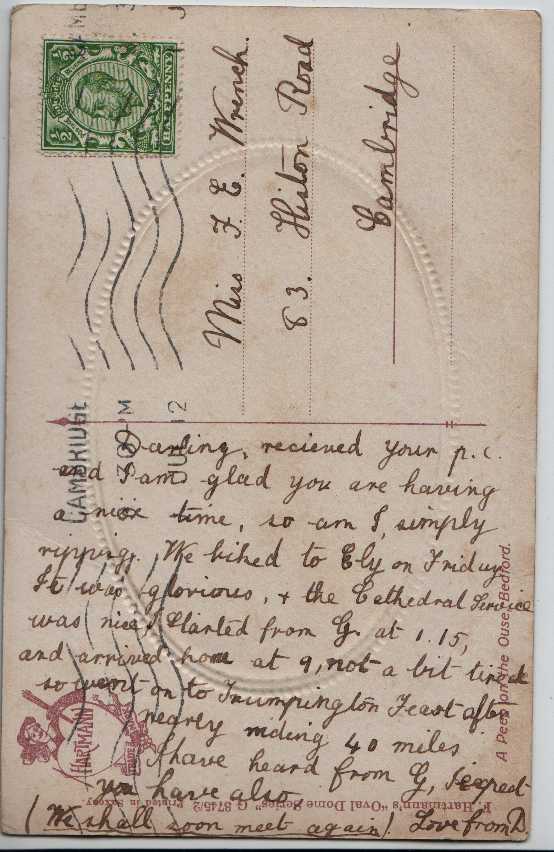 ½ ½
HALFPENNY
CAMBRIDGE
3 PM
12
Miss F. E. Wrench.
83. Histon Road
Cambridge
Darling, recieved your p.c.
and I am glad you are having
a nice time, so am I, simply
ripping. We biked to Ely on Friday.
It was glorious, + the Cathedral Service
was nice. Started from G. at 1.15,
and arrived home at 9, not a bit tired
so went on to Trumpington Feast after
nearly riding 40 miles
I have heard from G, I expect
you have also
(We shall soon meet again! Love from D
A Peep on the Ouse, Bedford.
HARTMANN
F. Hartmann's "Oval Dome Series" G 3745/2 Printed in Saxony